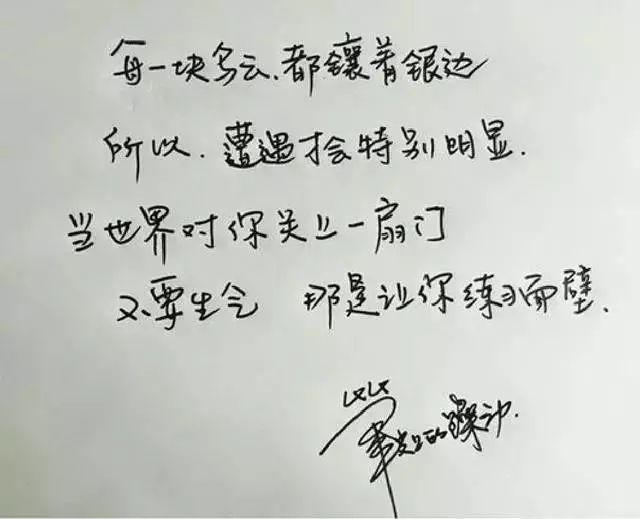 每一块乌云.都镶着银边
所以.遭遇才会特别明显.
当世界对你关上一扇门
不要生气 那是让你练习面壁.
的躁动.